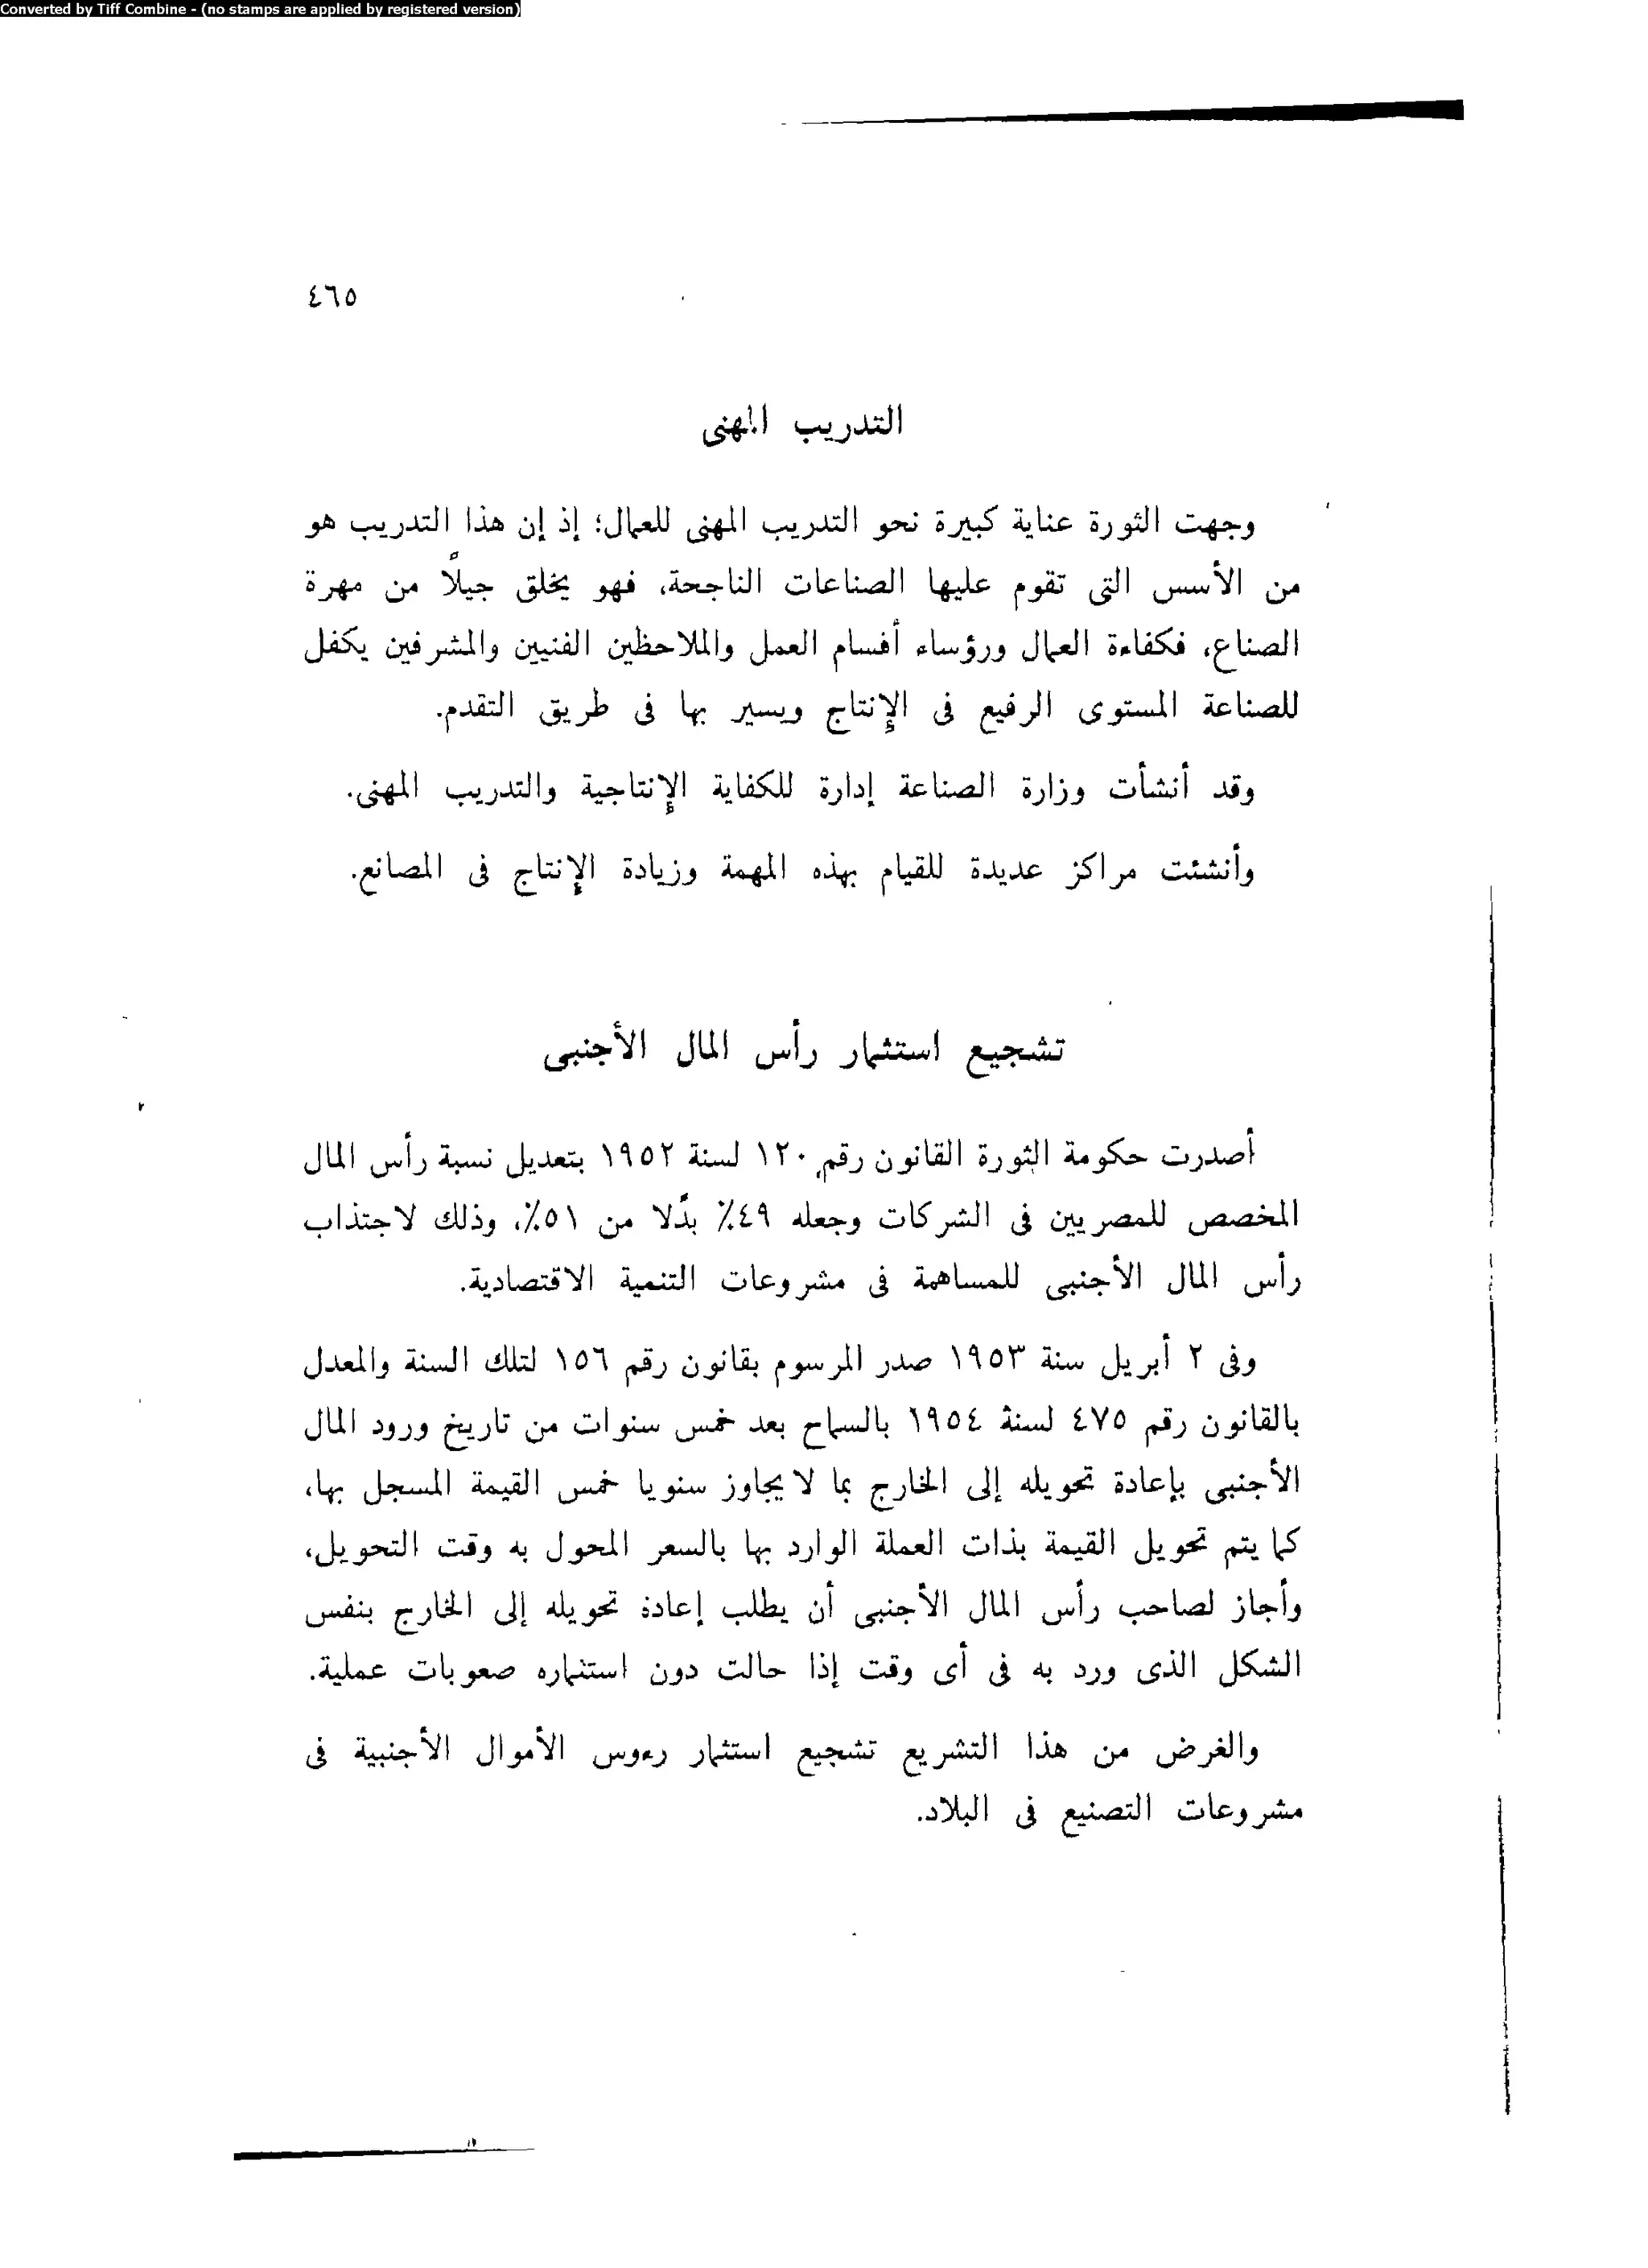 Converted by Tiff Combine - (no stamps are applied by registered version)
٤٦٥
التدريب المهنى
وجهت الثورة عناية كبيرة نحو التدريب المهنى للعمال؛ إذ إن هذا التدريب هو
من الأسس التى تقوم عليها الصناعات الناجحة، فهو يخلق جيلاً من مهرة
الصناع، فكفاءة العمال ورؤساء أقسام العمل والملاحظين الفنيين والمشرفين يكفل
للصناعة المستوى الرفيع فى الإنتاج ويسير بها فى طريق التقدم.
وقد أنشأت وزارة الصناعة إدارة للكفاية الإنتاجية والتدريب المهنى.
وأنشئت مراكز عديدة للقيام بهذه المهمة وزيادة الإنتاج فى المصانع.
تشجيع استثمار رأس المال الأجنبى
أصدرت حكومة الثورة القانون رقم ١٢٠ لسنة ١٩٥٢ بتعديل نسبة رأس المال
المخصص للمصريين فى الشركات وجعله ٤٩٪ بدًلا من ٥١٪، وذلك لاجتذاب
رأس المال الأجنبى للمساهمة فى مشروعات التنمية الاقتصادية.
وفى ٢ أبريل سنة ١٩٥٣ صدر المرسوم بقانون رقم ١٥٦ لتلك السنة والمعدل
بالقانون رقم ٤٧٥ لسنة ١٩٥٤ بالسماح بعد خمس سنوات من تاريخ ورود المال
الأجنبى بإعادة تحويله إلى الخارج بما لا يجاوز سنويا خمس القيمة المسجل بها،
كما يتم تحويل القيمة بذات العملة الوارد بها بالسعر المحول به وقت التحويل،
وأجاز لصاحب رأس المال الأجنبى أن يطلب إعادة تحويله إلى الخارج بنفس
الشكل الذى ورد به فى أى وقت إذا حالت دون استثماره صعوبات عملية.
والغرض من هذا التشريع تشجيع استثمار رءوس الأموال الأجنبية فى
مشروعات التصنيع فى البلاد.